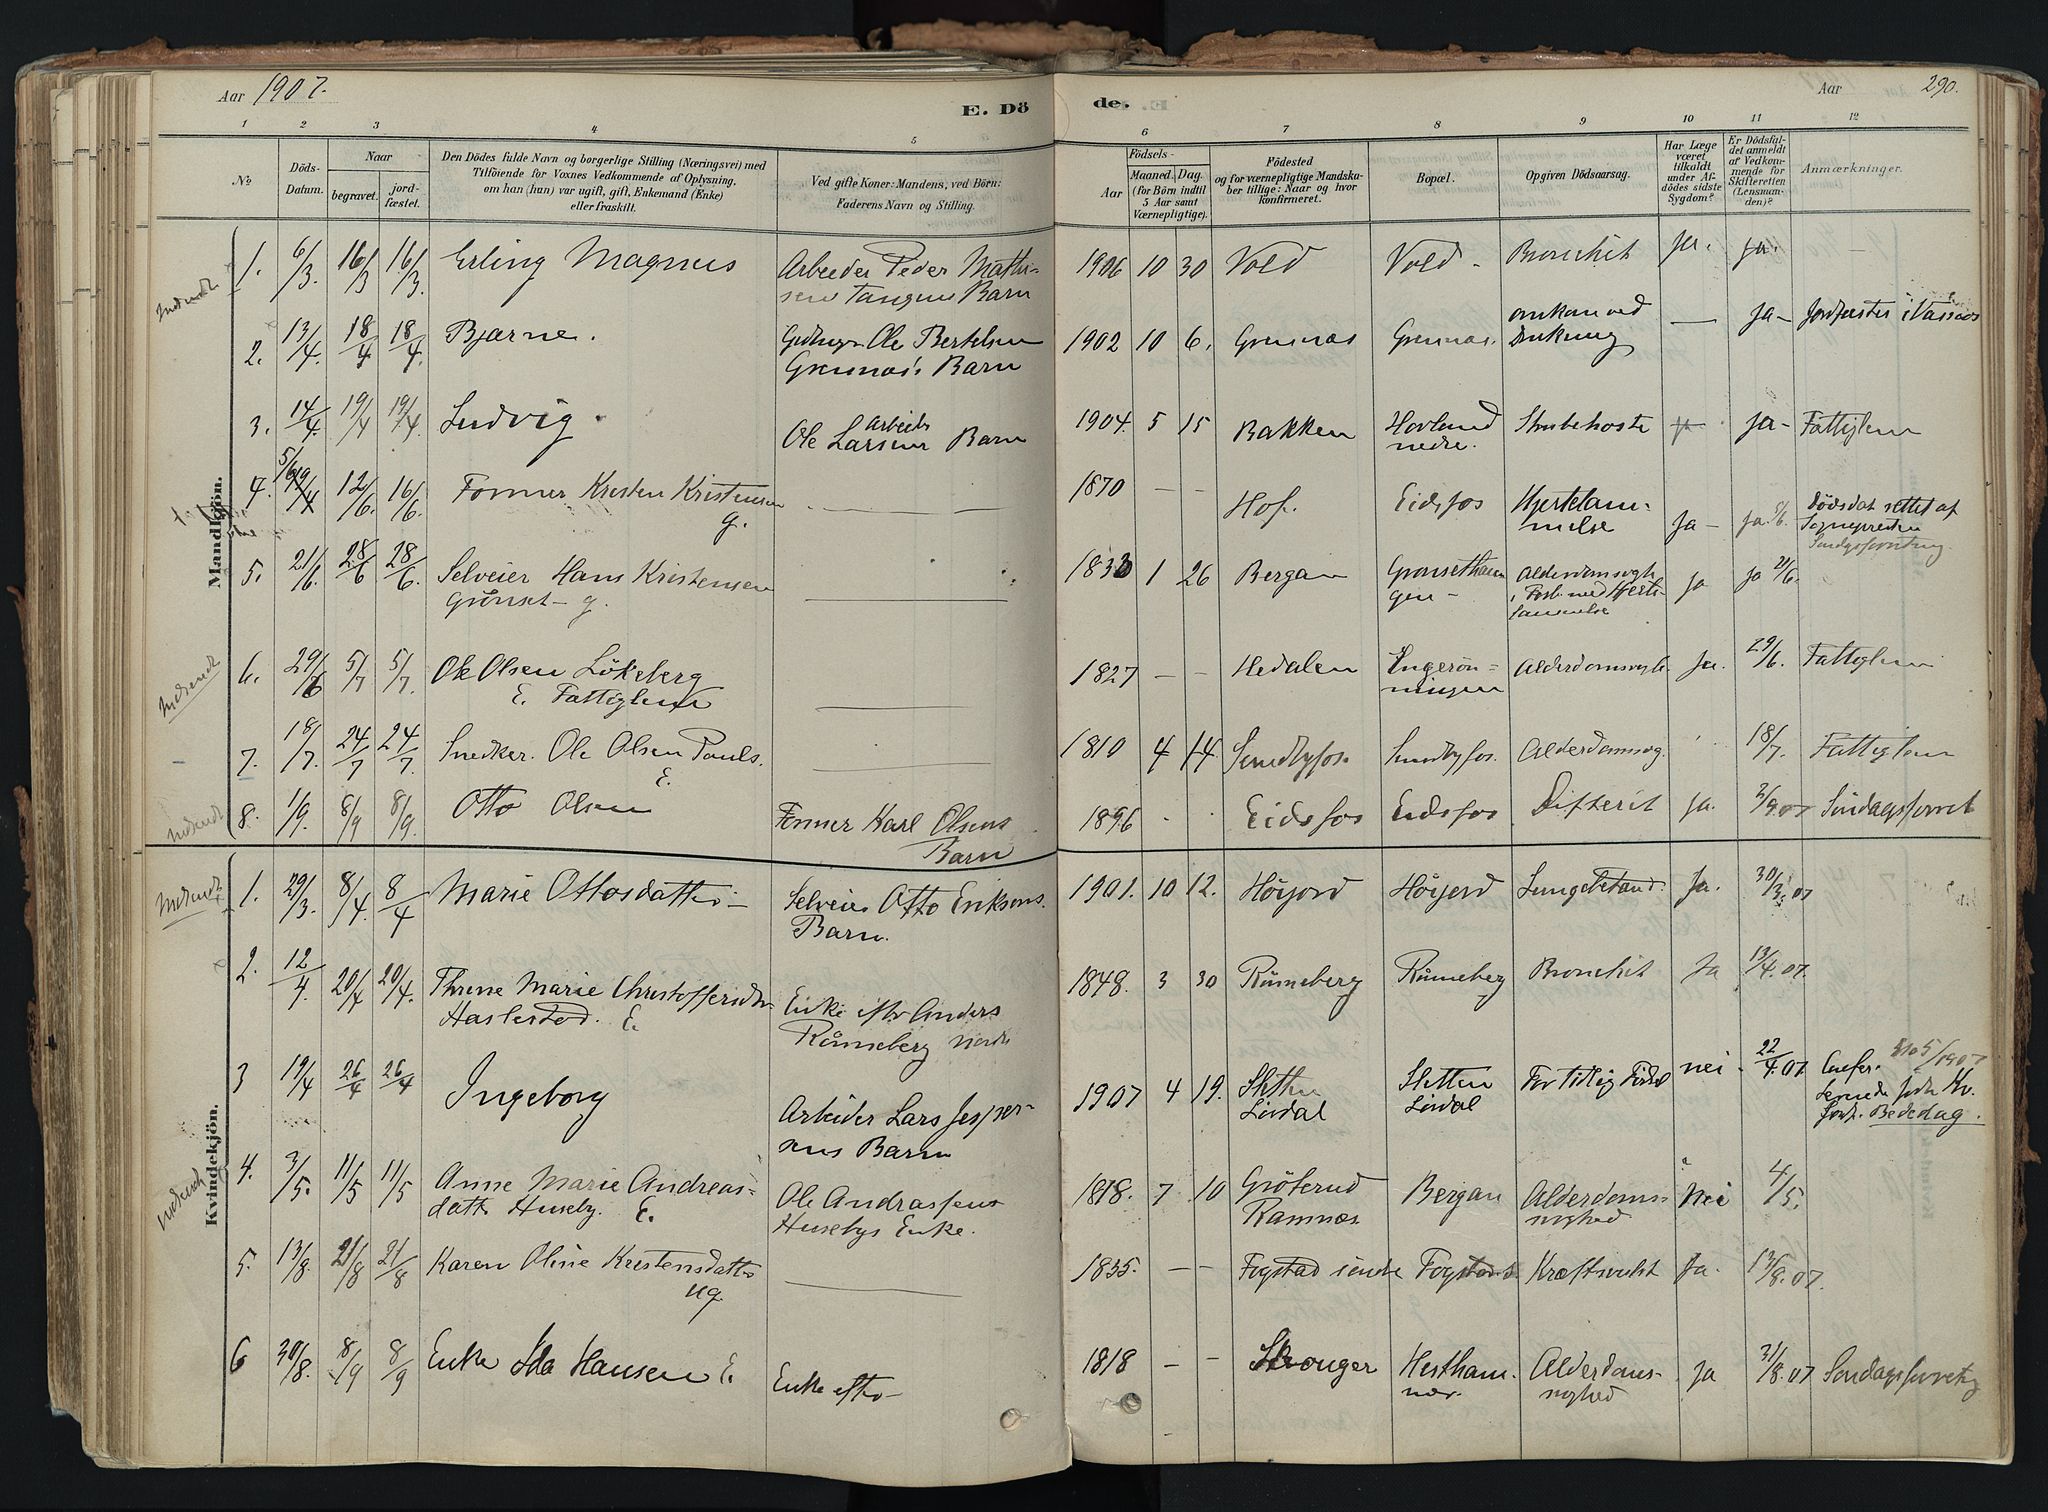 Aar 1907.
E. Dö
de.
Aar
290.
1 2 3 4 5 6 7 8 9 10 11 12
No
Döds-
Datum.
Naar
begravet.
jord-
fæstet.
Den Dödes fulde Navn og borgerlige Stilling (Næringsvei) med
Tilföiende for Voxnes Vedkommende af Oplysning,
om han (hun) var ugift, gift, Enkemand (Enke)
eller fraskilt.
Ved gifte Koner: Mandens, ved Börn:
Faderens Navn og Stilling.
Födsels-
Aar
Maaned. Dag.
(for Börn indtil
5 Aar samt
Værnepligtige).
Födested
og for værnepligtige Mandska-
ber tillige: Naar og hvor
konfirmeret.
Bopæl.
Opgiven Dödsaarsag.
Har Læge
været
tilkaldt
under Af-
dödes sidste
Sygdom?
Er Dödsfal-
det anmeldt
af Vedkom-
mende for
Skifteretten
(Lensman-
den)?
Anmærkninger.
Mandkjön.
1. 6/3. 16/3 16/3. Erling Magnus Arbeider Peder Mathi-
sens Tangens Barn 1906 10 30 Vold Vold - Bronchit Ja. Ja.
2. 13/4. 18/4 18/4. Bjarne. Ole Bertelsen
Grennæs Barn 1902 10 6. Grennæs Grennæs. omkom ved
Drukning — Ja - Jordfæstet i Vassaas
3. 14/4. 19/4 19/4. Ludvig. Arbeider
Ole Larsens Barn 1904. 5 15 Bakken Hovland
nedre. Strubehoste Ja - Fattiglem
4. 5/6 12/6. 16/6. Former Kristen Kristensen
g. 1870 — — Hof. Eidsfos Hjertelam-
melse Ja - Ja 5/6. Dødsdat. rettet af
Sognepresten
5. 21/6. 28/6 28/6. Selveier Hans Kristensen
Grönset - g. 1833 1 26 Bergan Alderdomssvagh.
Forb. med Hjerte-
lammelse Ja Ja 21/6.
6. 29/6 5/7 5/7. Ole Olsen Lökeberg
E. Fattiglem 1827 — — Hedalen Alderdomssvagh. Ja. 29/6. Fattiglem
7. 18/7. 24/7 24/7. Snedker. Ole Olsen Pauls.
E. 1810 4 14. Sundbyfos. Sundbyfos. Alderdomssvag. 18/7. Fattiglem
8. 1/9. 8/9 8/9. Otto Olsen Former Karl Olsens
Barn 1896 Eidsfos Eidsfos Difterit Ja. 3/9.07 Söndagsforret
Kvindekjön.
1. 29/3. 8/4. 8/4 Marie Ottosdatter - Selveier Otto Eriksens
Barn. 1901. 10 12. Höijord Höijord Lungebetænd. Ja. 30/3.07
2. 12/4. 20/4 20/4. Threne Marie Christoffersdtr.
Haslestad. E. Enke efter Anders
Rönneberg nordre 1848. 3 30 Rönneberg Rönneberg Bronchit Ja 13/4.07.
3 19/4 26/4 26/4 Ingeborg Arbeider Lars Jesper-
sens Barn 1907 4 19. Sletten
Lövdal Sletten
Lövdal For tidlig Födsel nei. 22/4.07
Bededag.
4. 3/5. 11/5 11/5 Anne Marie Andreas-
datter Huseby. E. Ole Andrassens
Husebys Enke. 1818. 7 10 Gröterud
Ramnæs Bergan Alderdoms-
svaghed Nei 4/5.
5. 13/8. 21/8 21/8 Karen Oline Kristensdatter
ug. 1835. — — Fogstad söndre Fogstad s. Kræftsvulst Ja. 13/8.07.
6 30/8. 8/9 8/9 Enke Ida Hansen E. Enke efter - 1818 — — Stronger Hestham-
mer. Alderdoms-
svaghed Ja 31/8.07 Söndagsforretng